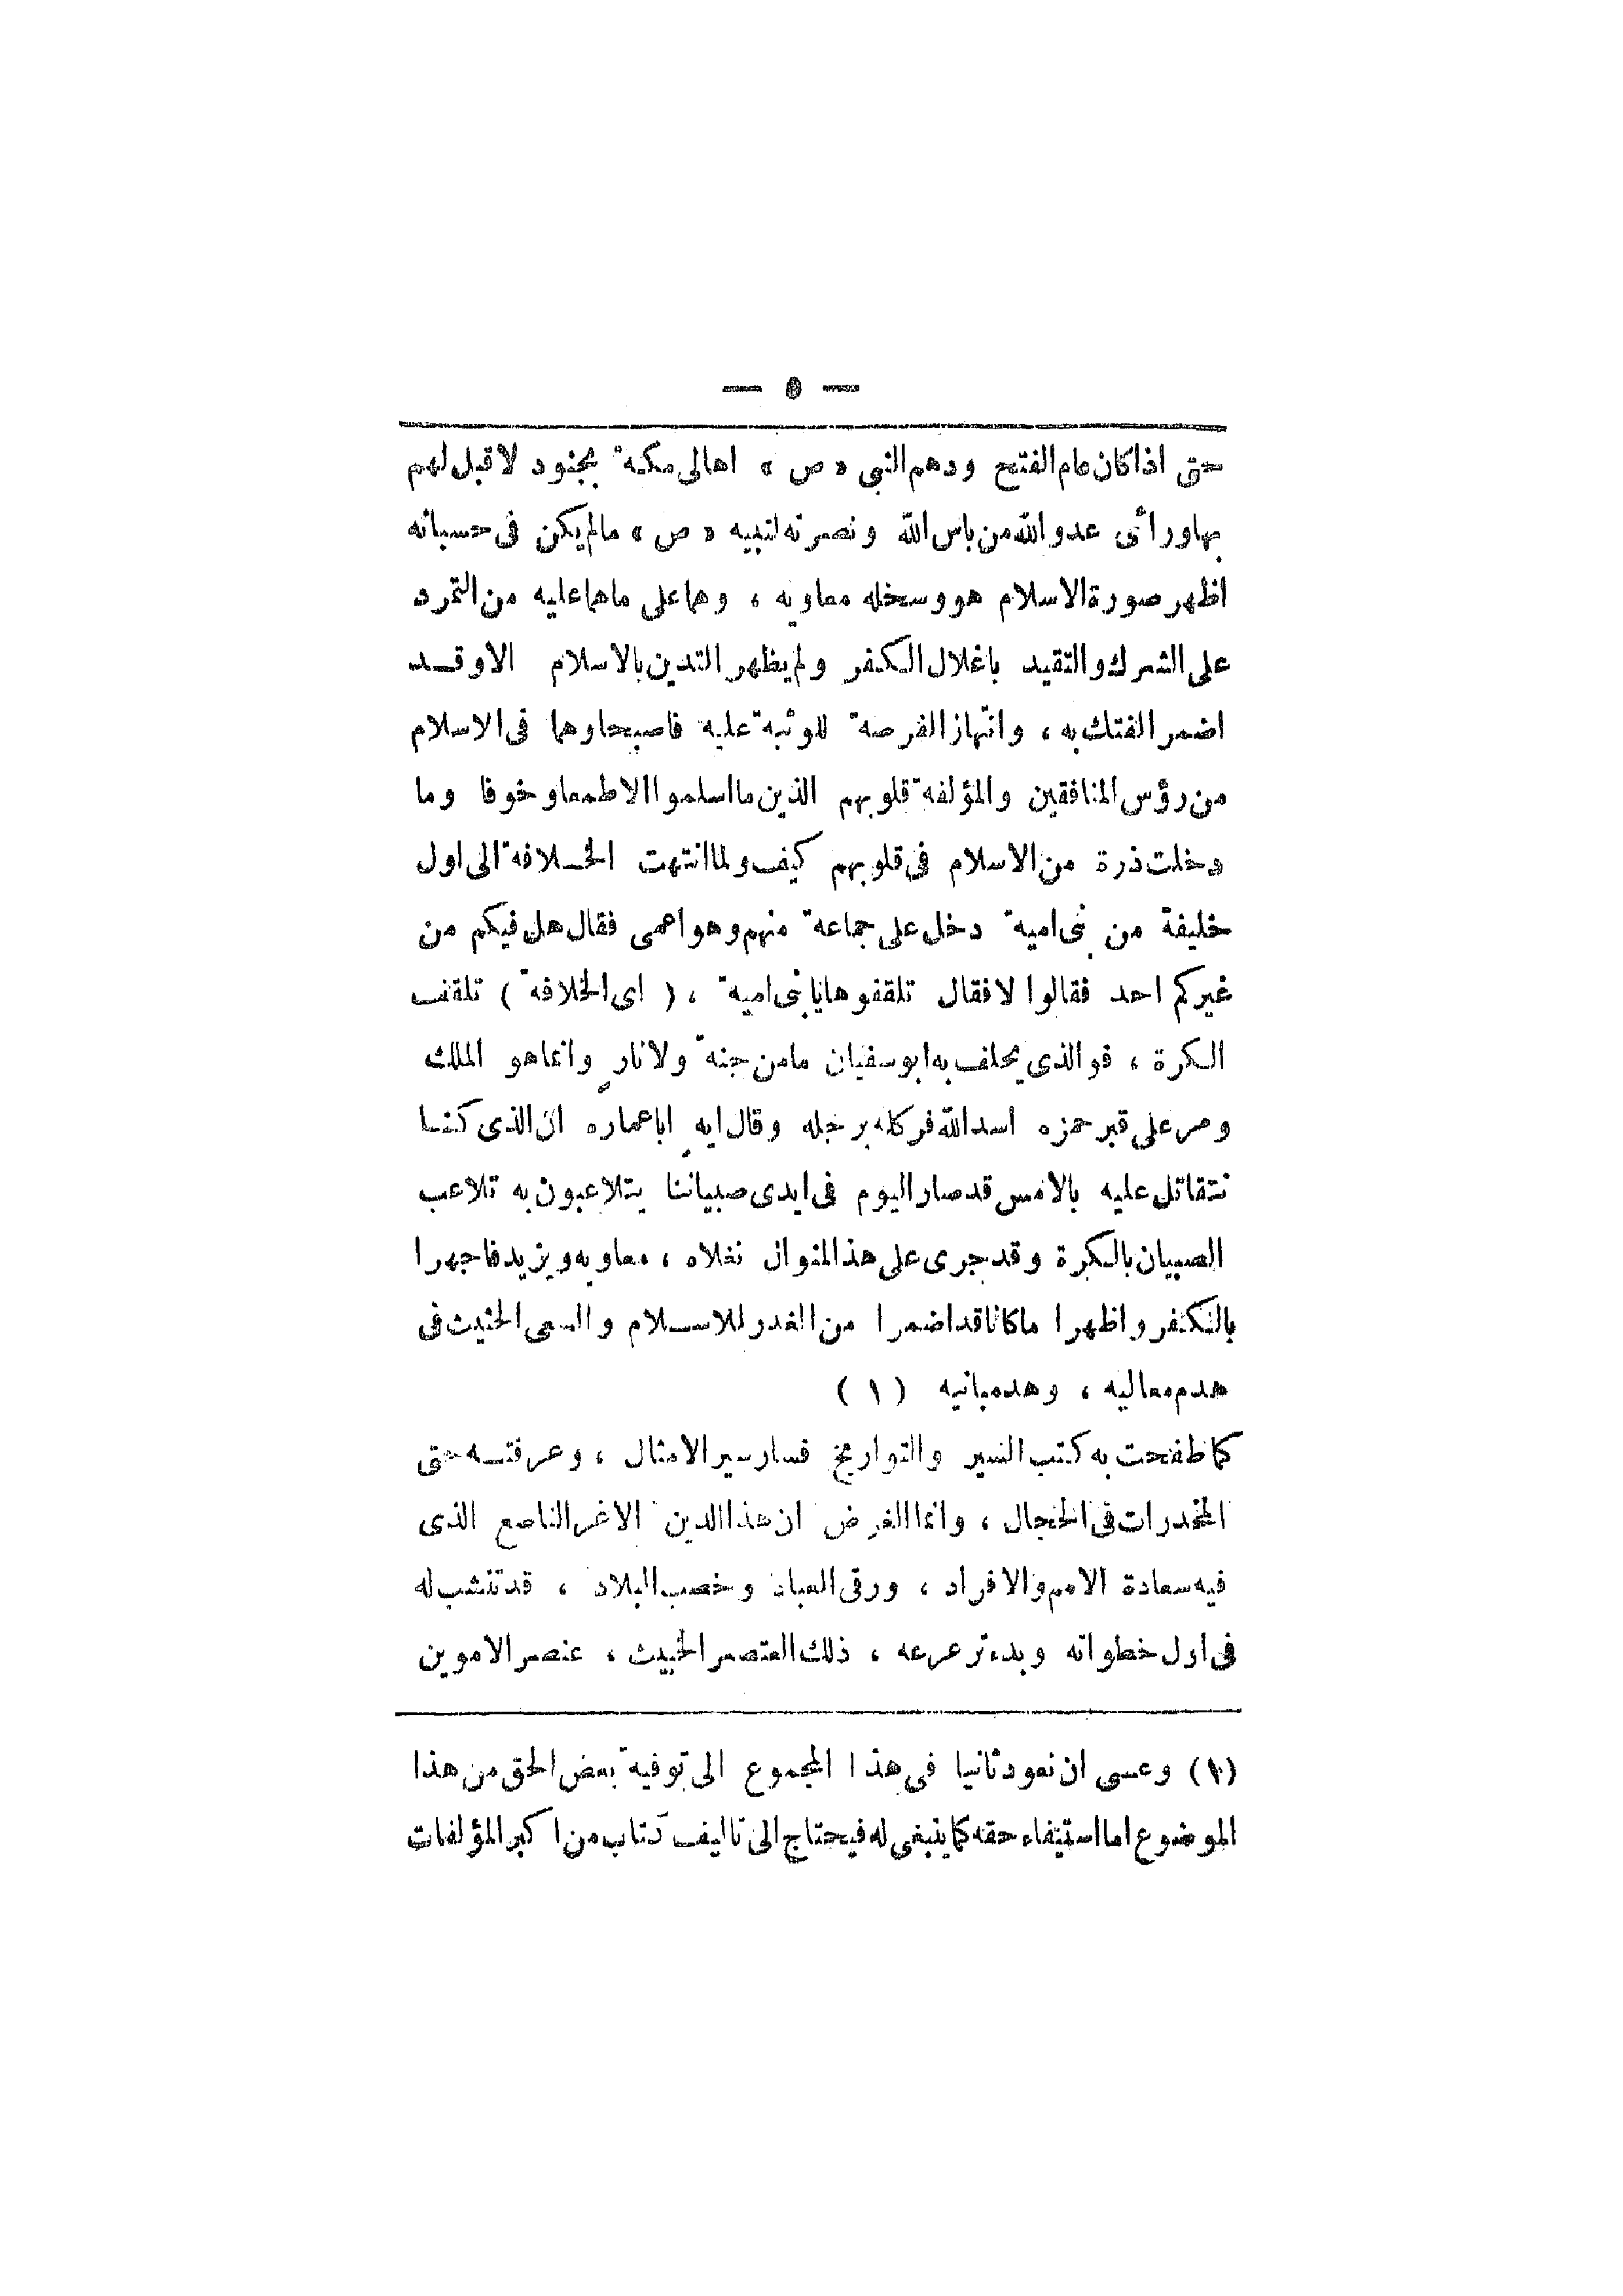 — ٥ —
حتى اذا كان عام الفتح ودهم النبي « ص » اهالى مكة بجنود لا قبل لهم
بها ورأى عدو الله من باس الله ونصرته لنبيه « ص » مالم يكن فى حسبانه
اظهر صورة الاسلام هو وسخله معاويه ، وهما على ماهما عليه من التمرد
على الشرك والتقيد باغلال الكفر ولم يظهر التدين بالاسلام الا وقد
اضمر الفتك به ، وانتهاز الفرصة للوثبة عليه فاصبحا وهما فى الاسلام
من رؤس المنافقين والمؤلفة قلوبهم الذين ما اسلموا الا طمعا وخوفا وما
دخلت ذرة من الاسلام فى قلوبهم كيف ولما انتهت الخلافة الى اول
خليفة من بنى امية دخل على جماعة منهم وهو اعمى فقال هل فيكم من
غيركم احد فقالوا لا فقال تلقفوها يا بنى امية ، ( اى الخلافة ) تلقف
الكرة ، فو الذي يحلف به ابو سفيان ما من جنة ولا نار وانما هو الملك
ومر على قبر حمزه اسد الله فركله برجله وقال ايه اباعماره ان الذى كنا
نتقاتل عليه بالامس قد صار اليوم فى ايدى صبياننا يتلاعبون به تلاعب
الصبيان بالكرة وقد جرى على هذ المنوال نغلاه ، معاويه ويزيد فاجهرا
بالكفر واظهرا ما كانا قد اضمرا من الغدر للاسلام والسعى الحثيث فى
هدم معاليه ، وهدمبانيه ( ١ )
كما طفحت به كتب السير والتواريخ فسار سير الامثال ، وعرفته حتى
المخدرات فى الحجال ، وانما الغرض ان هذا الدين الاغر الناصع الذى
فيه سعادة الامم والافراد ، ورقى العباد وخصب البلاد ، قد تنشب له
فى اول خطواته وبدء ترعرعه ، ذلك العتصر الخبيث ، عنصر الاموين
(١) وعسى ان نعود ثانيا فى هذا المجموع الى توفية بعض الحق من هذا
الموضوع اما استيفاء حقه كما ينبغى له فيحتاج الى تاليف كتاب من اكبر المؤلفات